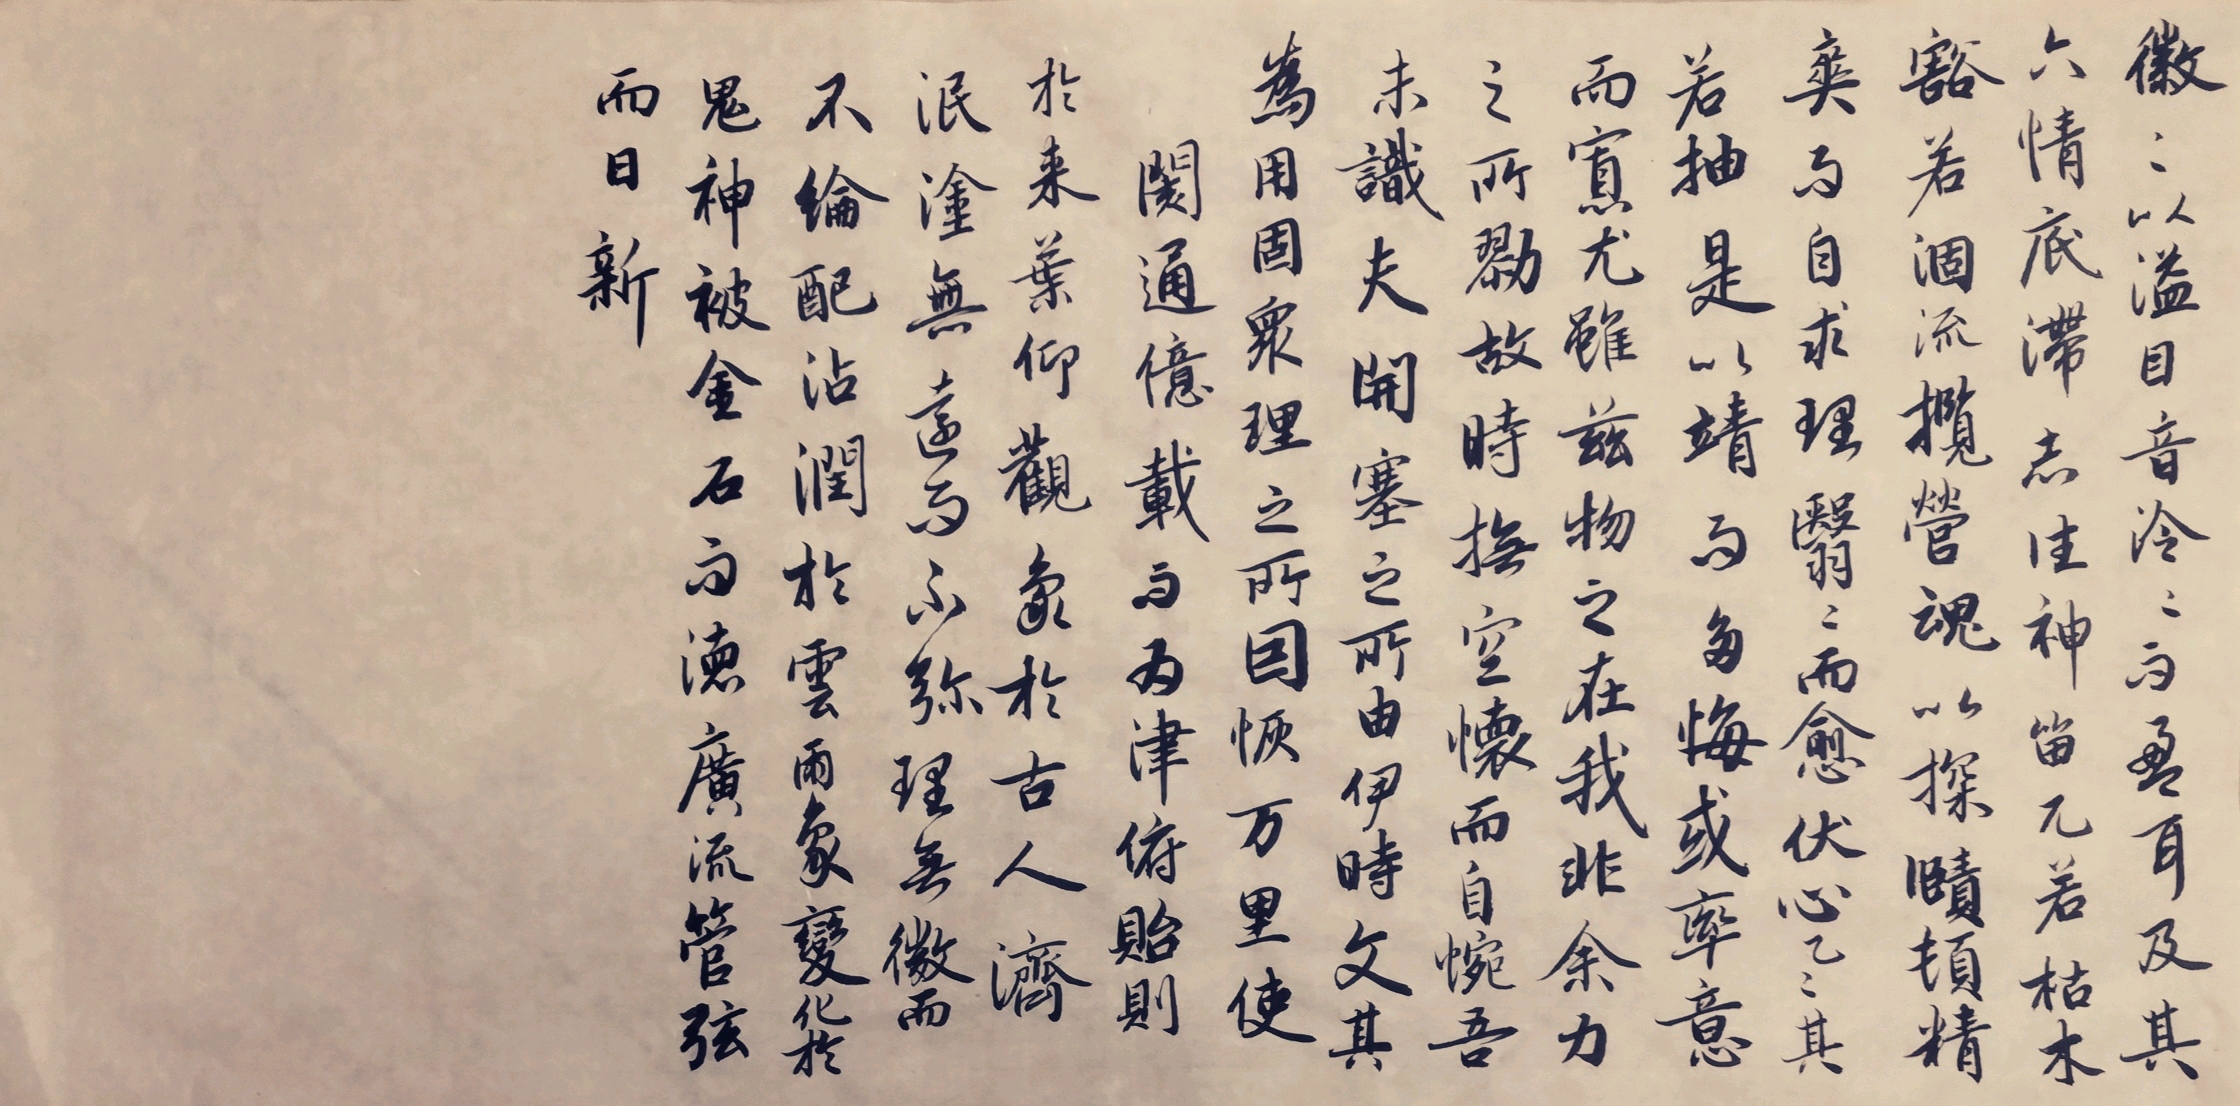 徽〻以溢目音泠〻而盈耳及其
六情底滯志往神留兀若枯木
豁若涸流攬營魂以探賾頓精
爽而自求理翳〻而愈伏心乙〻其
若抽是以竭而多悔或率意
而寡尤雖茲物之在我非余力
之所勠故時撫空懷而自惋吾
未識夫開塞之所由伊時文其
為用固眾理之所因恢万里使
閡通億載而為津俯貽則
於来葉仰觀象於古人濟
泯塗無遠而不弥理無微而
不綸配沾潤於雲雨象變化於
鬼神被金石而德廣流管弦
而日新